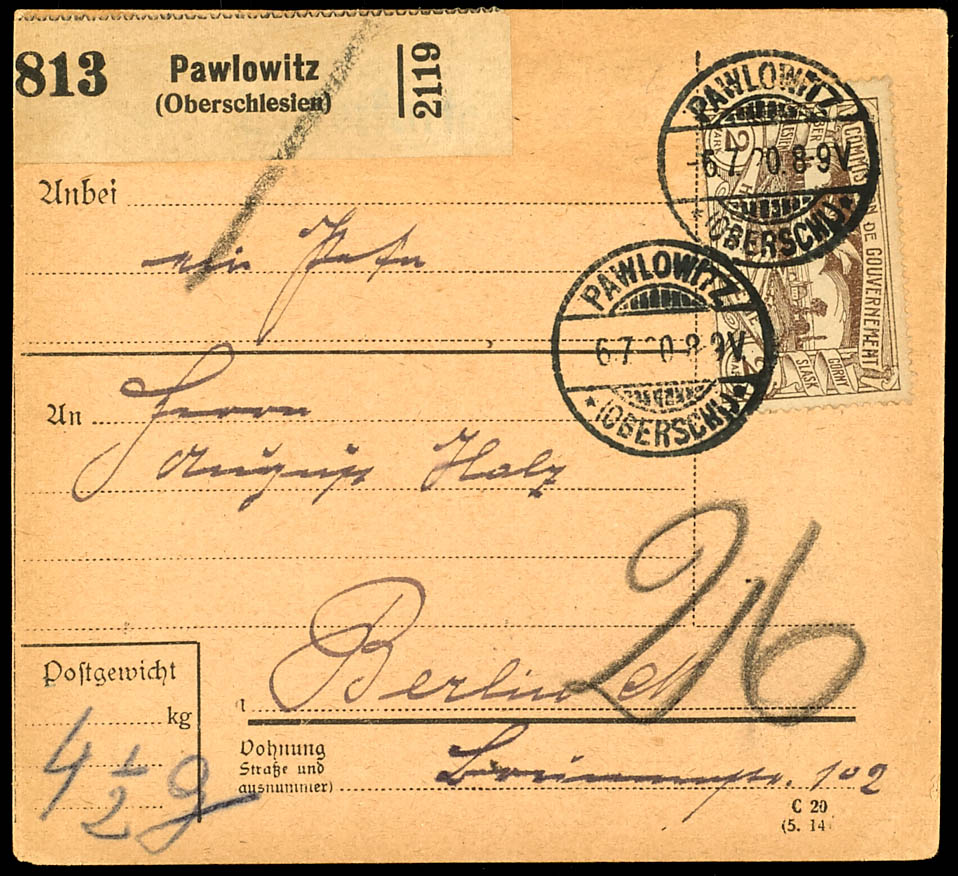 813 Pawlowitz 2119
(Oberschlesien)
PAWLOWITZ
6.7.20.8-9V
*(OBERSCHL)*
COMMISSION DE GOUVERNEMENT
GÓRNY
ŚLĄSK
Anbei
ein
PAWLOWITZ
6.7.20.8-9V
*(OBERSCHL)*
An Herrn
August Holz
26
Berlin
Postgewicht
kg
4 1/2
t
Wohnung
Straße und
ausnummer)
102
C 20
(5. 14